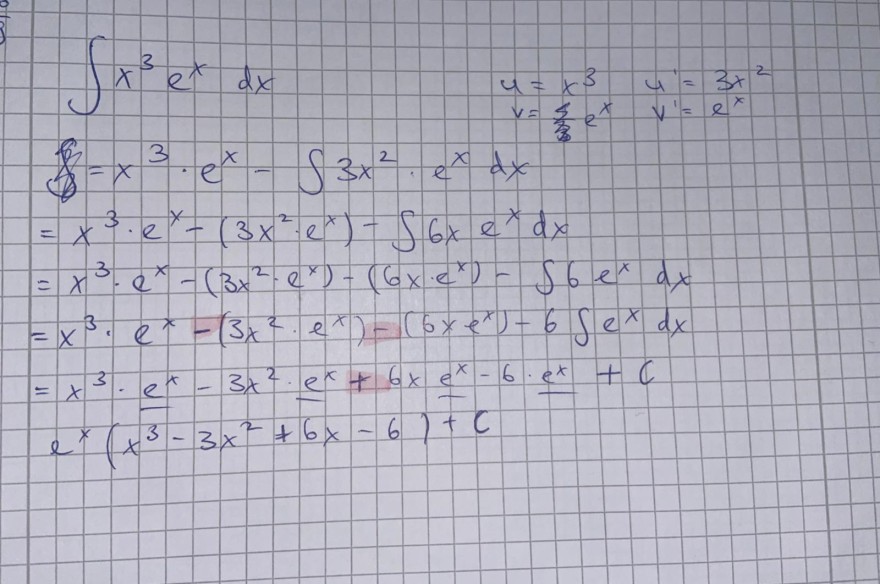 ∫ x³ eˣ dx u = x³ u' = 3x²
v = eˣ v' = eˣ
= x³ · eˣ - ∫ 3x² · eˣ dx
= x³ · eˣ - (3x² · eˣ) - ∫ 6x eˣ dx
= x³ · eˣ - (3x² · eˣ) - (6x · eˣ) - ∫ 6 eˣ dx
= x³ · eˣ - (3x² · eˣ) - (6x eˣ) - 6 ∫ eˣ dx
= x³ · eˣ - 3x² · eˣ + 6x eˣ - 6 · eˣ + C
eˣ (x³ - 3x² + 6x - 6) + C